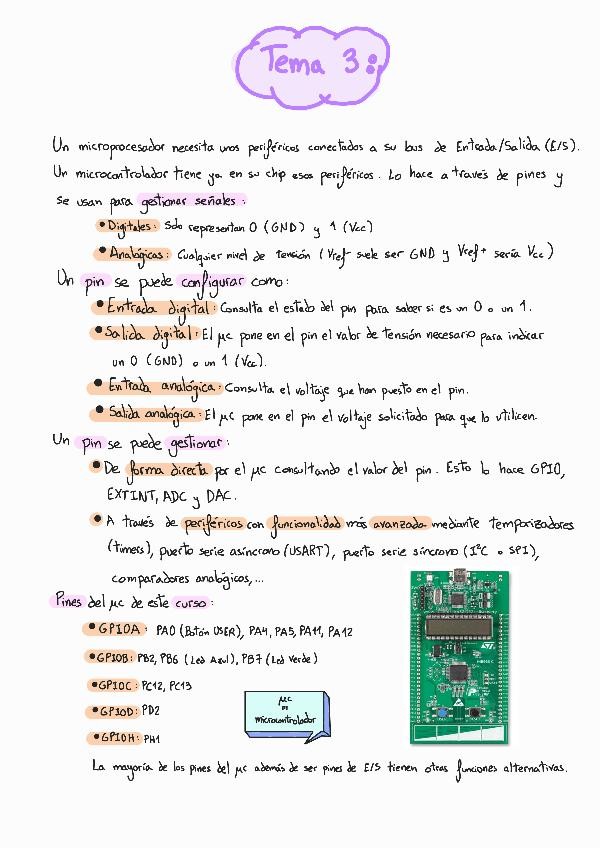 Tema 3:
Un microprocesador necesita unos periféricos conectados a su bus de Entrada/Salida (E/S).
Un microcontrolador tiene ya en su chip esos periféricos. Lo hace a través de pines y
se usan para gestionar señales:
• Digitales: Solo representan 0 (GND) y 1 (Vcc)
• Analógicas: Cualquier nivel de tensión (Vref- suele ser GND y Vref+ sería Vcc)
Un pin se puede configurar como:
• Entrada digital: Consulta el estado del pin para saber si es un 0 o un 1.
• Salida digital: El µC pone en el pin el valor de tensión necesario para indicar
un 0 (GND) o un 1 (Vcc).
• Entrada analógica: Consulta el voltaje que han puesto en el pin.
• Salida analógica: El µC pone en el pin el voltaje solicitado para que lo utilicen.
Un pin se puede gestionar:
• De forma directa por el µC consultando el valor del pin. Esto lo hace GPIO,
EXTINT, ADC y DAC.
• A través de periféricos con funcionalidad más avanzada mediante temporizadores
(timers), puerto serie asíncrono (USART), puerto serie síncrono (I²C o SPI),
comparadores analógicos,...
Pines del µC de este curso:
• GPIOA: PA0 (Botón USER), PA4, PA5, PA11, PA12
• GPIOB: PB2, PB6 (Led Azul), PB7 (Led Verde)
• GPIOC: PC12, PC13
• GPIOD: PD2
• GPIOH: PH1
µC
es
microcontrolador
La mayoría de los pines del µC además de ser pines de E/S tienen otras funciones alternativas.